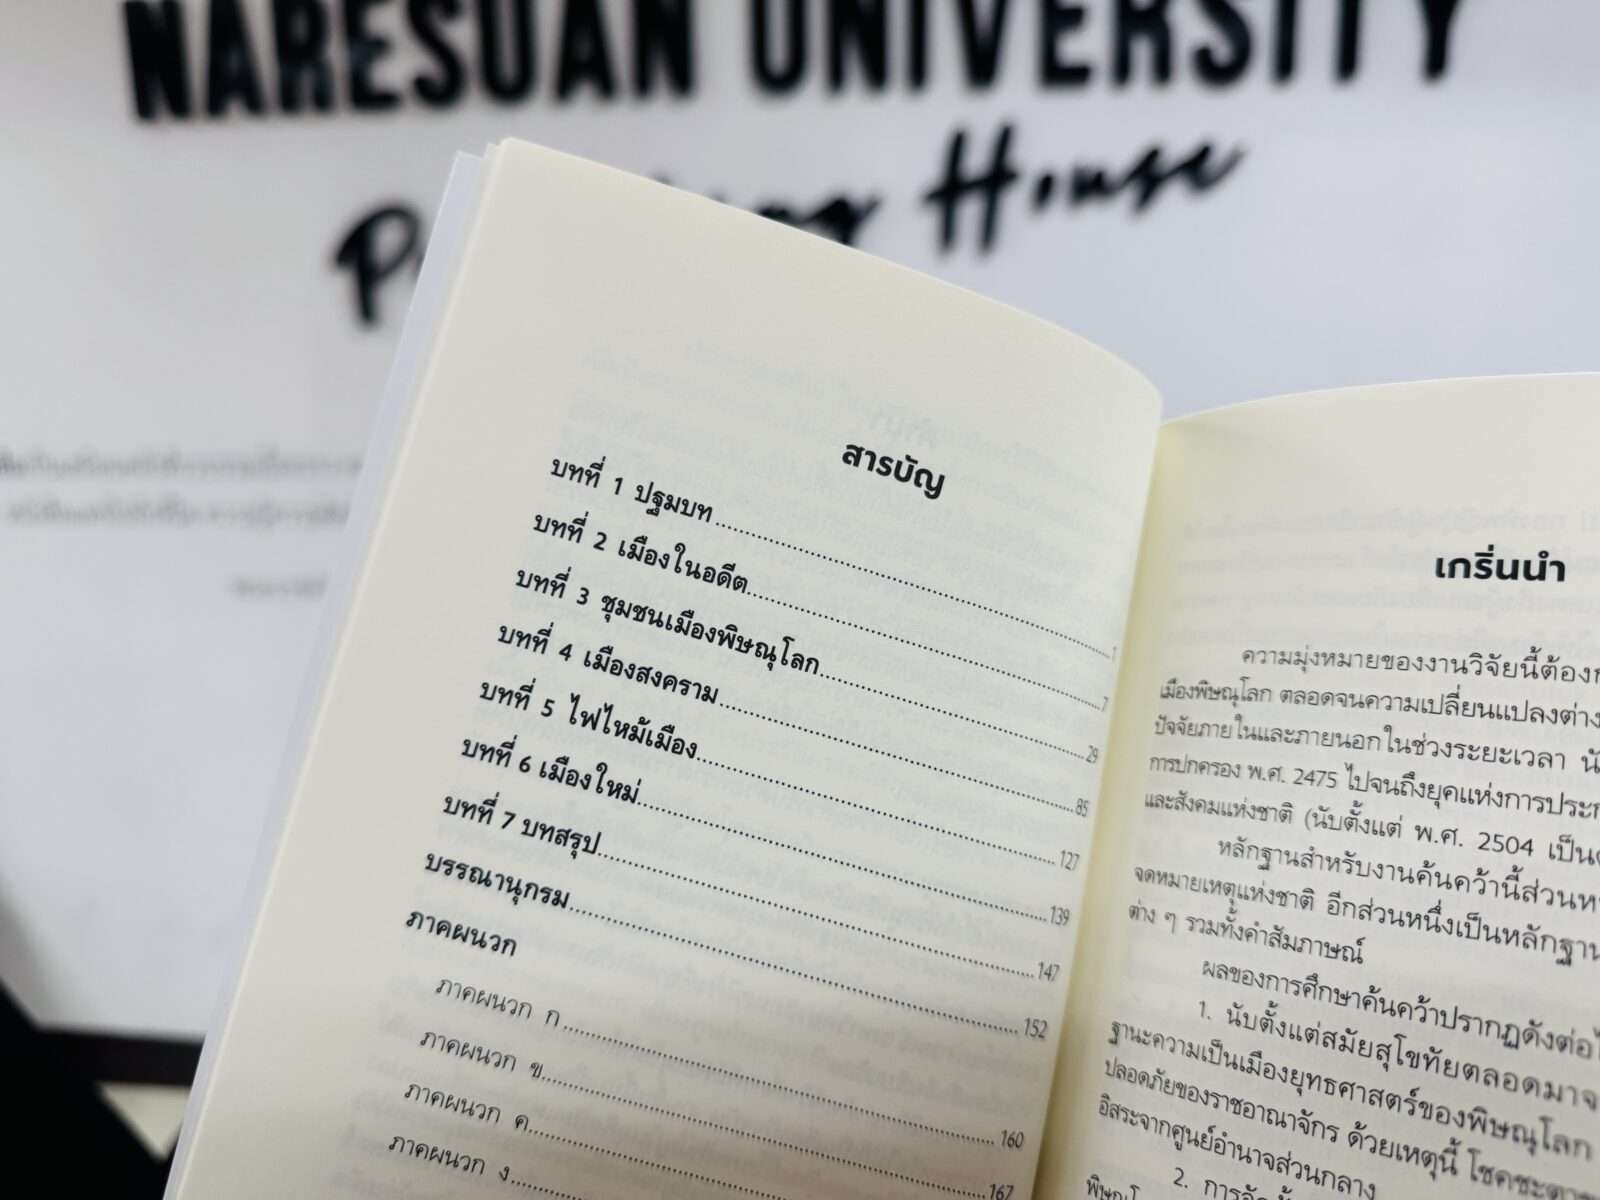 NARESUAN UNIVERSITY
House
สารบัญ
บทที่ 1 ปฐมบท....................1
บทที่ 2 เมืองในอดีต....................7
บทที่ 3 ชุมชนเมืองพิษณุโลก....................29
บทที่ 4 เมืองสงคราม....................85
บทที่ 5 ไฟไหม้เมือง....................127
บทที่ 6 เมืองใหม่....................139
บทที่ 7 บทสรุป....................147
บรรณานุกรม....................152
ภาคผนวก
ภาคผนวก ก....................160
ภาคผนวก ข....................167
ภาคผนวก ค....................
ภาคผนวก ง....................
เกริ่นนำ
ความมุ่งหมายของงานวิจัยนี้ต้อง
เมืองพิษณุโลก ตลอดจนความเปลี่ยนแปลงต่าง
ปัจจัยภายในและภายนอกในช่วงระยะเวลา
การปกครอง พ.ศ. 2475 ไปจนถึงยุคแห่งการ
และสังคมแห่งชาติ (นับตั้งแต่ พ.ศ. 2504 เป็น
หลักฐานสำหรับงานค้นคว้านี้ส่วน
จดหมายเหตุแห่งชาติ อีกส่วนหนึ่งเป็นหลักฐาน
ต่าง ๆ รวมทั้งคำสัมภาษณ์
ผลของการศึกษาค้นคว้าปรากฏดังต่อ
1. นับตั้งแต่สมัยสุโขทัยตลอดมา
ฐานะความเป็นเมืองยุทธศาสตร์ของพิษณุโลก
ปลอดภัยของราชอาณาจักร ด้วยเหตุนี้
อิสระจากศูนย์อำนาจส่วนกลาง
2.